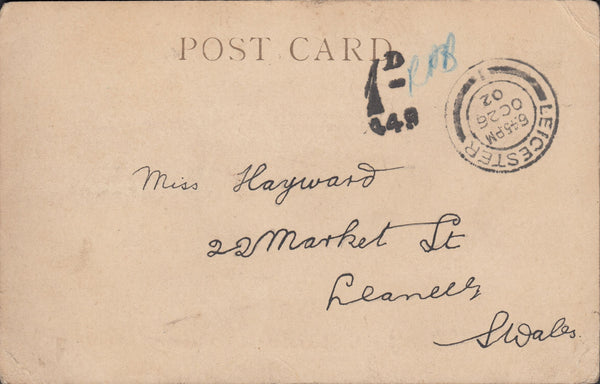 POST CARD
1D
449
LEICESTER
6.45PM
OC 26
02
Miss Hayward
22 Market St
Llanelly
S Wales.